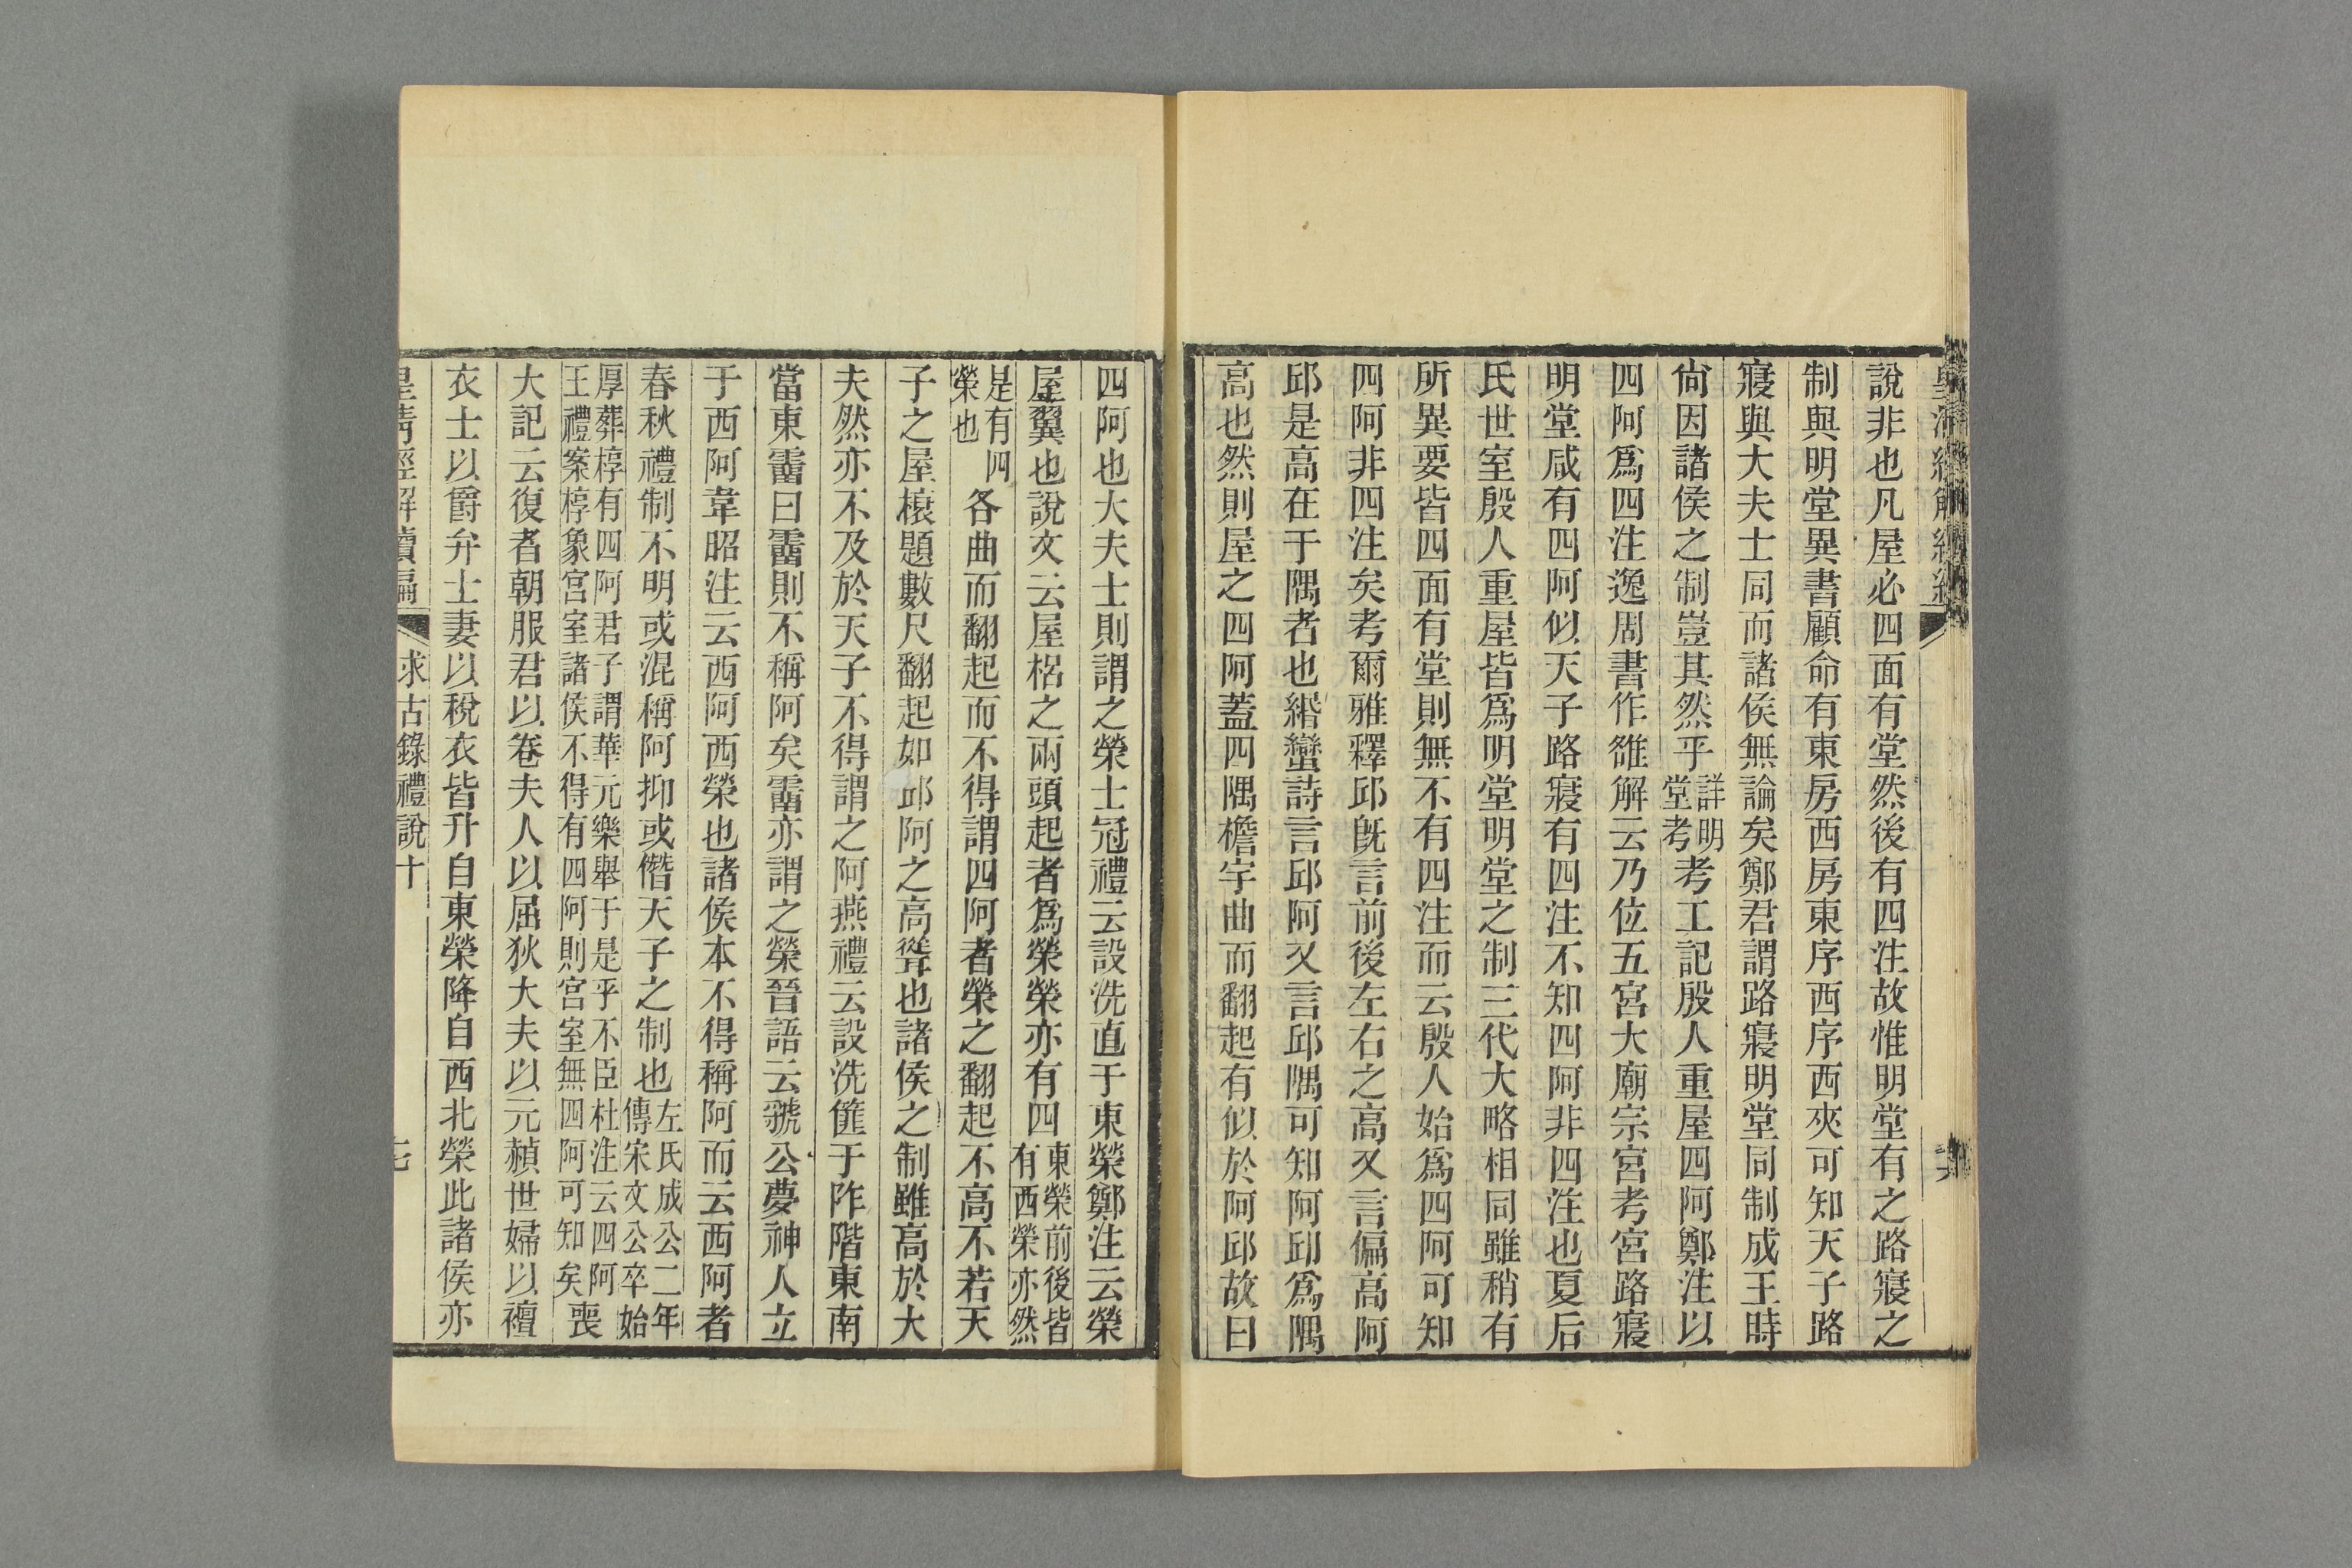 說非也凡屋必四面有堂然後有四注故惟明堂有之路寢之
制與明堂異書顧命有東房西房東序西序西夾可知天子路
寢與大夫士同而諸侯無論矣鄭君謂路寢明堂同制成王時
尙因諸侯之制豈其然乎詳明堂考考工記殷人重屋四阿鄭注以
四阿爲四注逸周書作雒解云乃位五宮大廟宗宮考宮路寢
明堂咸有四阿似天子路寢有四注不知四阿非四注也夏后
氏世室殷人重屋皆爲明堂明堂之制三代大略相同雖稍有
所異要皆四面有堂則無不有四注而云殷人始爲四阿可知
四阿非四注矣考爾雅釋邱旣言前後左右之高又言偏高阿
邱是高在于隅者也緡蠻詩言邱阿又言邱隅可知阿邱爲隅
高也然則屋之四阿蓋四隅檐宇曲而翻起有似於阿邱故曰
四阿也大夫士則謂之榮士冠禮云設洗直于東榮鄭注云榮
屋翼也說文云屋梠之兩頭起者爲榮榮亦有四東榮前後皆有西榮亦然
是有四榮也各曲而翻起而不得謂四阿者榮之翻起不高不若天
子之屋榱題數尺翻起如邱阿之高聳也諸侯之制雖高於大
夫然亦不及於天子不得謂之阿燕禮云設洗篚于阼階東南
當東霤曰霤則不稱阿矣霤亦謂之榮晉語云虢公夢神人立
于西阿韋昭注云西阿西榮也諸侯本不得稱阿而云西阿者
春秋禮制不明或混稱阿抑或僭天子之制也左氏成公二年傳宋文公卒始
厚葬椁有四阿君子謂華元樂舉于是乎不臣杜注云四阿王禮案椁象宮室諸侯不得有四阿則宮室無四阿可知矣喪
大記云復者朝服君以卷夫人以屈狄大夫以元赬世婦以襢
衣士以爵弁士妻以稅衣皆升自東榮降自西北榮此諸侯亦
皇清經解續編 求古錄禮說十 七